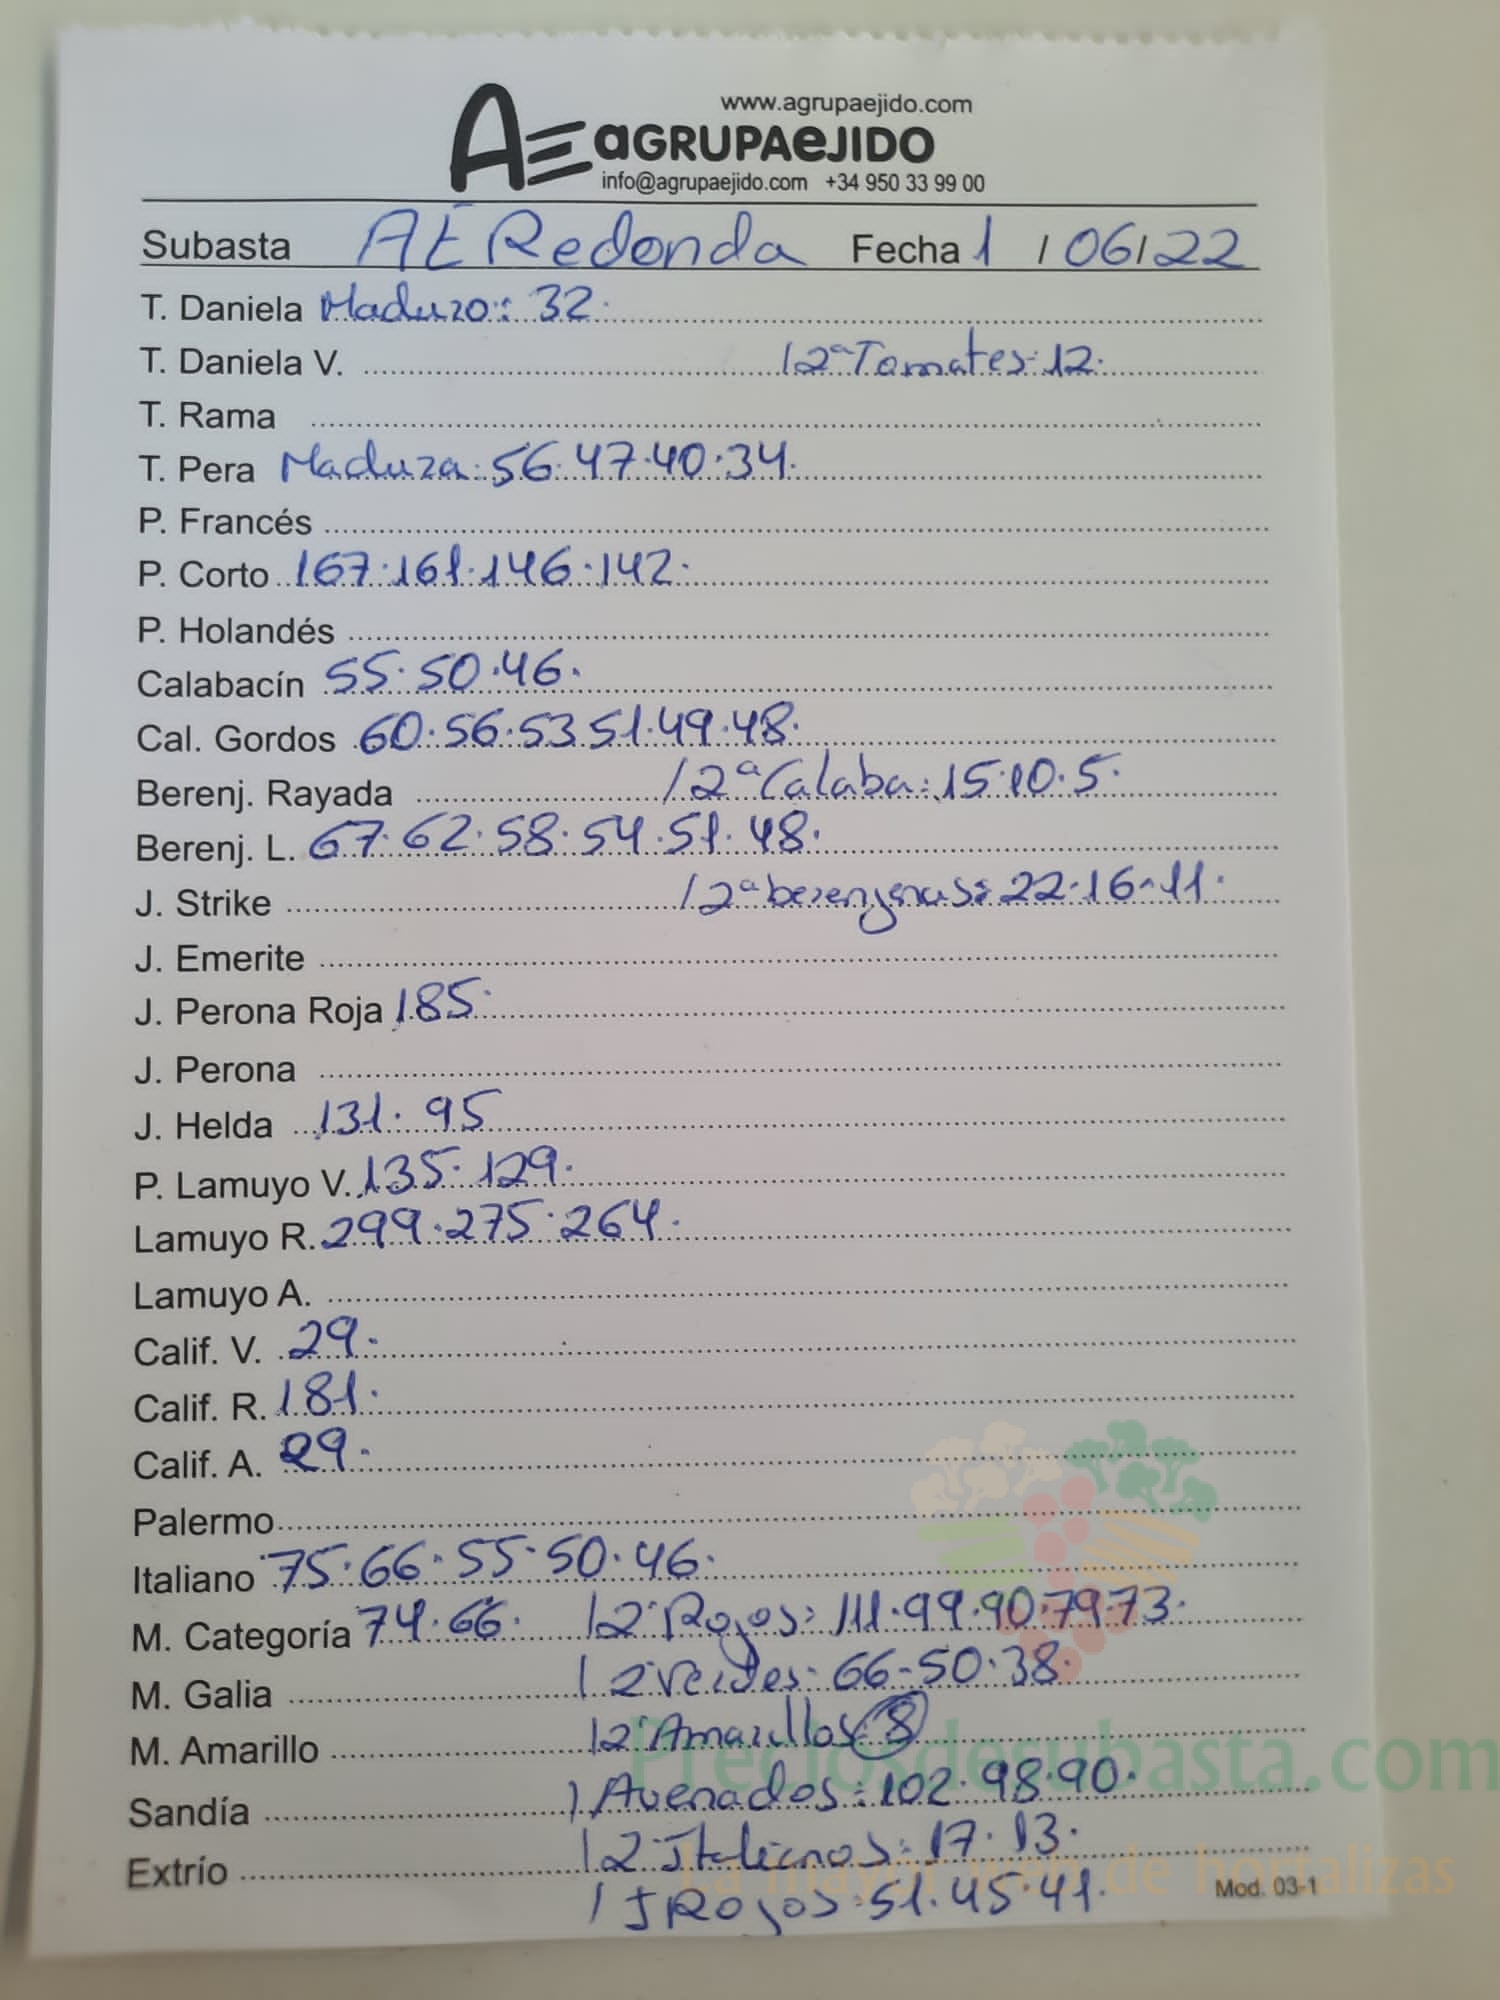 www.agrupaejido.com
AE aGRUPAeJIDO
info@agrupaejido.com +34 950 33 99 00
Subasta AE Redonda Fecha 1 / 06/22
T. Daniela Maduro: 32.
T. Daniela V. / 2ª Tomates: 12.
T. Rama
T. Pera Madura: 56.47.40.34.
P. Francés
P. Corto 167.161.146.142.
P. Holandés
Calabacín 55.50.46.
Cal. Gordos 60.56.53 51.49.48.
Berenj. Rayada / 2ª Calaba: 15.10.5.
Berenj. L. 67.62.58.54.51.48.
J. Strike / 2ª berenjenas: 22.16.11.
J. Emerite
J. Perona Roja 185.
J. Perona
J. Helda 131.95
P. Lamuyo V. 135.129.
Lamuyo R. 299.275.264.
Lamuyo A.
Calif. V. 29.
Calif. R. 181.
Calif. A. 29.
Palermo
Italiano 75.66.55.50.46.
M. Categoría 74.66. / 2ª Rojos: 111.99.90.79.73.
M. Galia / 2 Verdes: 66-50.38.
M. Amarillo / 2ª Amarillos: 8
Preciosdesubasta.com
Sandía / Avenados: 102.98.90.
Extrío / 2 Italianos: 17.13.
La mayor web de hortalizas
/ I Rojos: 51.45.41. Mod. 03-1